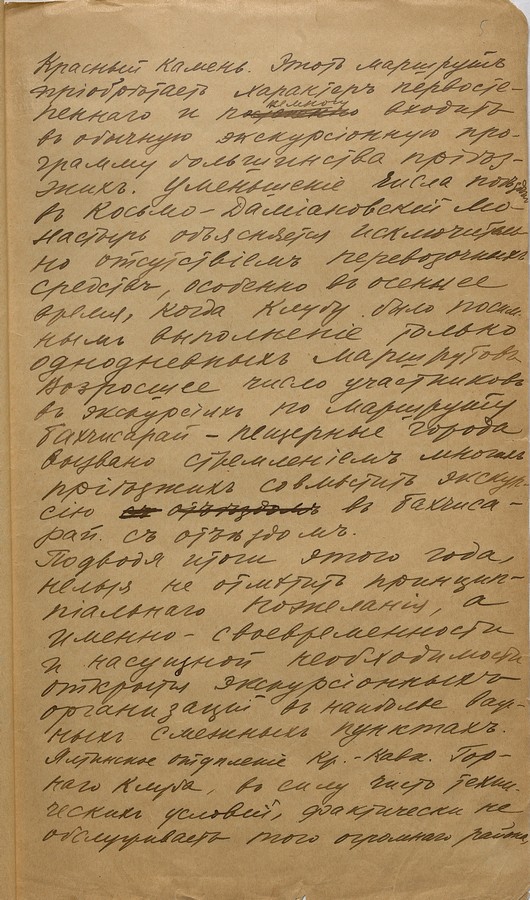 5
Красный Камень. Этотъ маршрутъ
пріобрѣтаетъ характеръ первосте-
пеннаго и понемногу входитъ
въ обычную экскурсіонную про-
грамму большинства пріѣз-
жихъ. Уменьшеніе числа поѣздокъ
въ Косьмо-Даміановскій Мо-
настырь объясняется исключитель
но отсутствіемъ перевозочныхъ
средствъ, особенно въ осеннее
время, когда Клубу было посиль
нымъ выполненіе только
однодневныхъ маршрутовъ.
Возросшее число участниковъ
въ экскурсіяхъ по маршруту
Бахчисарай - пещерные города
вызвано стремленіемъ многихъ
пріѣзжихъ совмѣстить экскур-
сію съ отъѣздомъ въ Бахчиса-
рай съ отъѣздомъ.
Подводя итоги этого года,
нельзя не отмѣтить принцип-
піальнаго пожеланія, а
именно - своевременности
и насущной необходимости
открытія экскурсіонныхъ
организацій въ наиболѣе важ-
ныхъ смежныхъ пунктахъ.
Ялтинское отдѣленіе Кр.-Кавк. Гор-
наго Клуба, въ силу чисто техни-
ческихъ условій, фактически не
обслуживаетъ того огромнаго района,